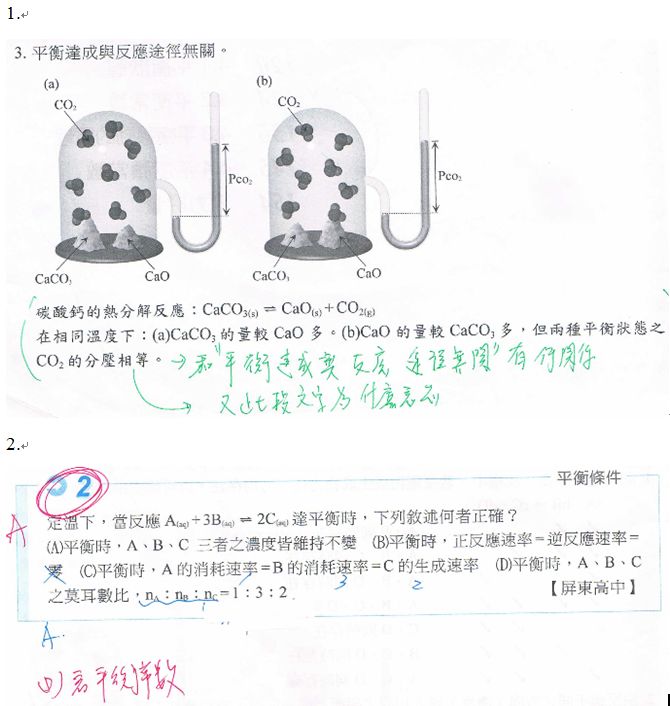 1.
3. 平衡達成與反應途徑無關。
(a)
(b)
CO₂
CO₂
Pco₂
Pco₂
CaCO₃
CaO
CaCO₃
CaO
碳酸鈣的熱分解反應：CaCO₃(s) ⇌ CaO(s)+CO₂(g)
在相同溫度下：(a)CaCO₃ 的量較 CaO 多。(b)CaO 的量較 CaCO₃ 多，但兩種平衡狀態之
CO₂ 的分壓相等。→和"平衡達成與反應途徑無關"有何關係
→又此段文字為什麼意思
2.
2
平衡條件
A
定溫下，當反應 A(aq)+3B(aq) ⇌ 2C(aq) 達平衡時，下列敘述何者正確？
(A)平衡時，A、B、C 三者之濃度皆維持不變 (B)平衡時，正反應速率＝逆反應速率＝
零 (C)平衡時，A 的消耗速率＝B 的消耗速率＝C 的生成速率 (D)平衡時，A、B、C
3
2
之莫耳數比，nA：nB：nC＝1：3：2。
【屏東高中】
A.